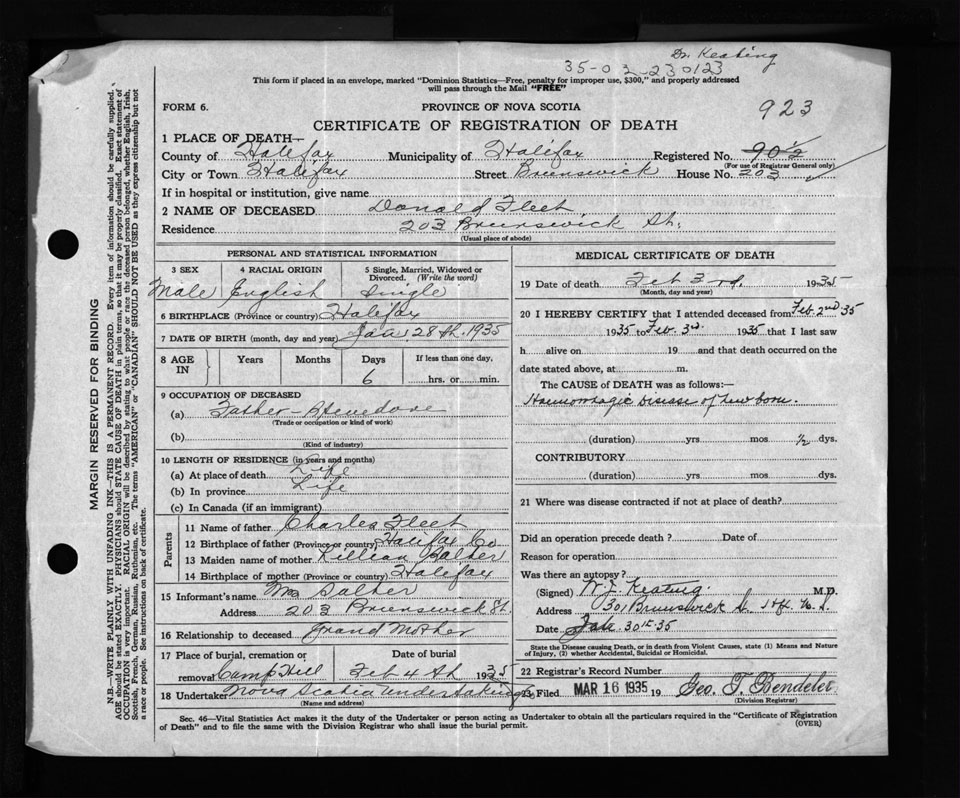 Dr. Keating
35-02-230123
This form if placed in an envelope, marked "Dominion Statistics—Free, penalty for improper use, $300," and properly addressed
will pass through the Mail "FREE"
FORM 6.
PROVINCE OF NOVA SCOTIA
923
CERTIFICATE OF REGISTRATION OF DEATH
1 PLACE OF DEATH—
County of Halifax Municipality of Halifax Registered No. 90½
(For use of Registrar General only)
City or Town Halifax Street Brunswick House No. 203
If in hospital or institution, give name
2 NAME OF DECEASED Donald Fleet
Residence 203 Brunswick St.
(Usual place of abode)
PERSONAL AND STATISTICAL INFORMATION
3 SEX 4 RACIAL ORIGIN 5 Single, Married, Widowed or
Divorced. (Write the word)
Male English Single
6 BIRTHPLACE (Province or country) Halifax
7 DATE OF BIRTH (month, day and year) Jan. 28th. 1935
8 AGE IN Years Months Days If less than one day,
6 hrs. or min.
9 OCCUPATION OF DECEASED
(a) Father Stevedore
(Trade or occupation or kind of work)
(b)
(Kind of industry)
10 LENGTH OF RESIDENCE (in years and months)
(a) At place of death Life
(b) In province Life
(c) In Canada (if an immigrant)
Parents
11 Name of father Charles Fleet
12 Birthplace of father (Province or country) Halifax Co
13 Maiden name of mother Lillian Salter
14 Birthplace of mother (Province or country) Halifax
15 Informant's name Mrs Salter
Address 203 Brunswick St.
16 Relationship to deceased Grand Mother
17 Place of burial, cremation or Date of burial
removal Camp Hill Feb 4th 1935
18 Undertaker Nova Scotia Undertaking
(Name and address)
MEDICAL CERTIFICATE OF DEATH
19 Date of death Feb 3rd. 1935
(Month, day and year)
20 I HEREBY CERTIFY that I attended deceased from Feb. 2nd 35
1935 to Feb. 3rd 1935 that I last saw
h alive on 19 and that death occurred on the
date stated above, at m.
The CAUSE of DEATH was as follows:—
Haemorrhagic Disease of New born.
(duration) yrs mos ½ dys.
CONTRIBUTORY
(duration) yrs mos dys.
21 Where was disease contracted if not at place of death?
Did an operation precede death? Date of
Reason for operation
Was there an autopsy?
(Signed) W. J. Keating M.D.
Address 301 Brunswick S. Hfx. N. S.
Date 30th-35
State the Disease causing Death, or in death from Violent Causes, state (1) Means and Nature
of Injury, (2) whether Accidental, Suicidal or Homicidal.
22 Registrar's Record Number
23 Filed MAR 16 1935 19 Geo. T. Bendeler
(Division Registrar)
Sec. 46—Vital Statistics Act makes it the duty of the Undertaker or person acting as Undertaker to obtain all the particulars required in the "Certificate of Registration
of Death" and to file the same with the Division Registrar who shall issue the burial permit.
(OVER)
MARGIN RESERVED FOR BINDING
N.B.—WRITE PLAINLY WITH UNFADING INK—THIS IS A PERMANENT RECORD. Every item of information should be carefully supplied.
AGE should be stated EXACTLY. PHYSICIANS should STATE CAUSE OF DEATH in plain terms, so that it may be properly classified. Exact statement of
OCCUPATION is very important. RACIAL ORIGIN will be described by stating to what people or race the deceased person belonged, whether English, Irish,
Scottish, French, German, Russian, Ruthenian, etc. The terms "AMERICAN" or "CANADIAN" SHOULD NOT BE USED as they express citizenship but not
a race or people. See instructions on back of certificate.